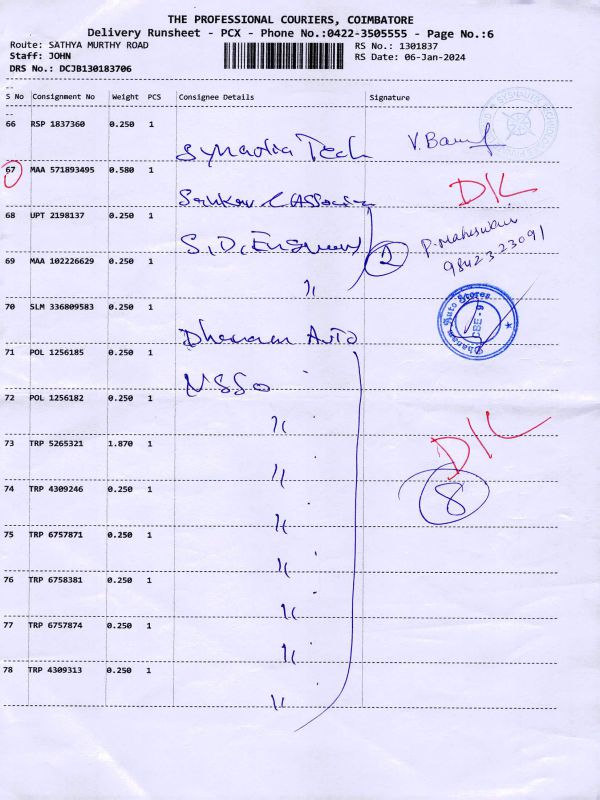 THE PROFESSIONAL COURIERS, COIMBATORE
Delivery Runsheet - PCX - Phone No.:0422-3505555 - Page No.:6
Route: SATHYA MURTHY ROAD RS No.: 1301837
Staff: JOHN RS Date: 06-Jan-2024
DRS No.: DCJB130183706
S No Consignment No Weight PCS Consignee Details Signature
66 RSP 1837360 0.250 1
Tech V.
67 MAA 571893495 0.580 1
D/L
68 UPT 2198137 0.250 1
S.D. 2 P. Maheswari
69 MAA 102226629 0.250 1 98423 23091
"
70 SLM 336809583 0.250 1
Auto Dhanam Auto Stores
71 POL 1256185 0.250 1
NSSO
72 POL 1256182 0.250 1
"
D/L
73 TRP 5265321 1.870 1
"
8
74 TRP 4309246 0.250 1
"
75 TRP 6757871 0.250 1
"
76 TRP 6758381 0.250 1
"
77 TRP 6757874 0.250 1
"
78 TRP 4309313 0.250 1
"